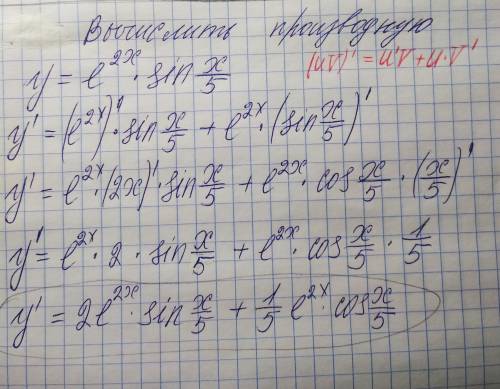 Вычислить производную
y = e^{2x} · sin x/5
(uv)' = u'v + u·v'
y' = (e^{2x})' · sin x/5 + e^{2x} · (sin x/5)'
y' = e^{2x} · (2x)' · sin x/5 + e^{2x} · cos x/5 · (x/5)'
y' = e^{2x} · 2 · sin x/5 + e^{2x} · cos x/5 · 1/5
y' = 2e^{2x} · sin x/5 + 1/5 e^{2x} · cos x/5